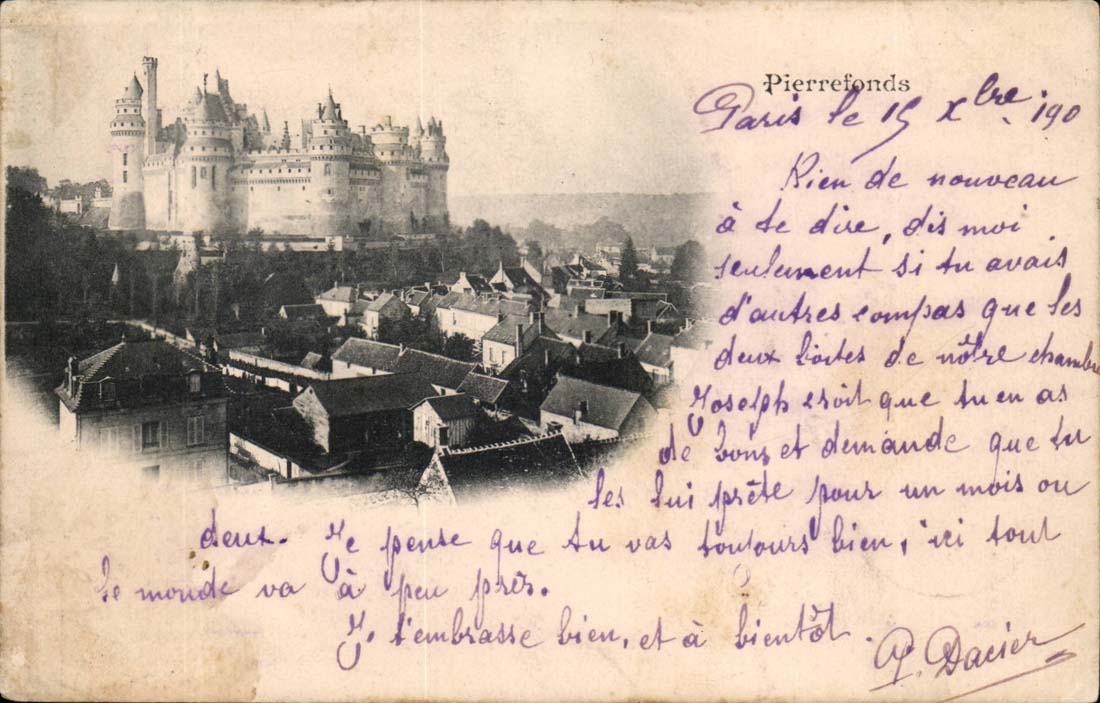 Pierrefonds
Paris le 15 Xbre 190
Rien de nouveau
à te dire, dis moi
seulement si tu avais
d'autres compas que les
deux boîtes de nôtre chambre
Joselph croit que tu en as
de bons et demande que tu
les lui prête pour un mois ou
deux. Je pense que tu vas toujours bien, ici tout
le monde va à peu près.
Je t'embrasse bien, et à bientôt.
P. Dacier